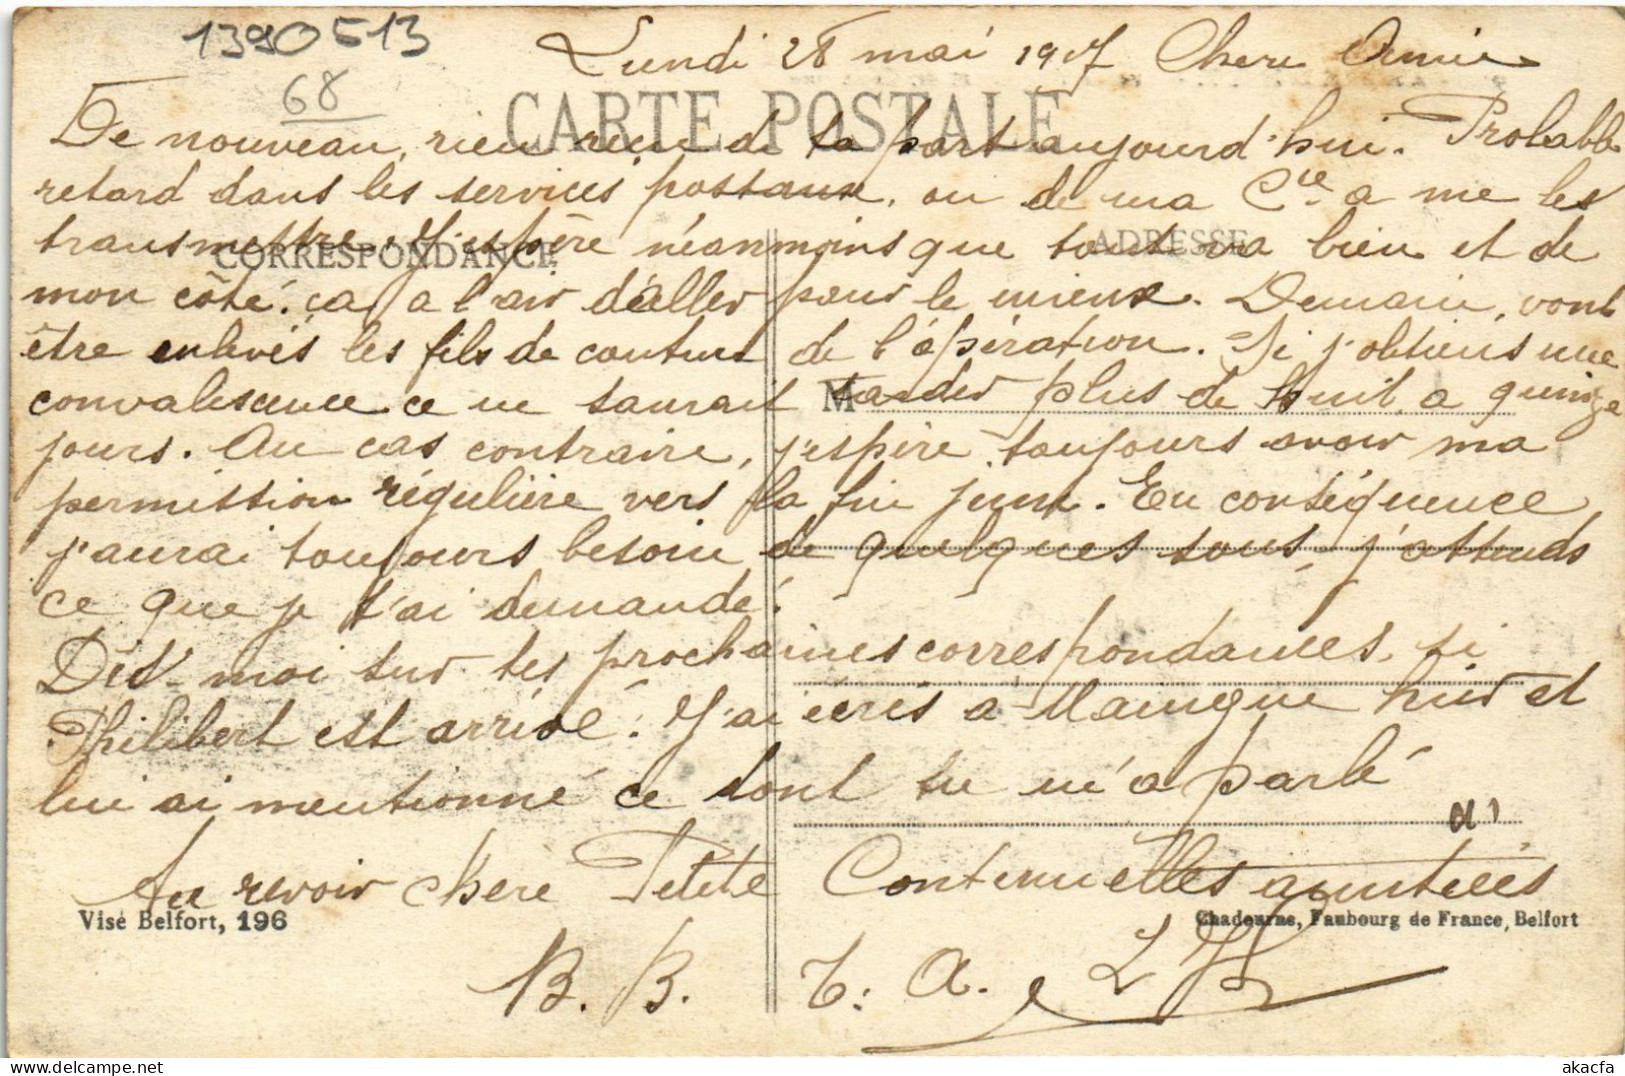 1390513
68
Lundi 28 mai 1917 Chere Amie
CARTE POSTALE
De nouveau, rien rien de ta part aujourd'hui. Probable
retard dans les services postaux, ou de ma Cie a me les
transmettre. J'espère néanmoins que tout va bien et de
CORRESPONDANCE
ADRESSE
mon côté. ça a l'air d'aller pour le mieux. Demain, vont
être enlevés les fils de couture de l'opération. Si j'obtiens une
convalescence ce ne saurait tarder plus de huit a quinze
M
jours. Au cas contraire, j'espère toujours avoir ma
permission régulière vers la fin juin. En conséquence
j'aurai toujours besoin de quelques sous, j'attends
ce que je t'ai demandé.
Dis-moi sur tes prochaines correspondances, si
Philibert est arrivé. J'ai écris a hier et
lui ai mentionné ce dont tu m'a parlé
Au revoir chère Petite Continuelles amitiées
Visé Belfort, 196
Chadourne, Faubourg de France, Belfort
B. B. T. A.